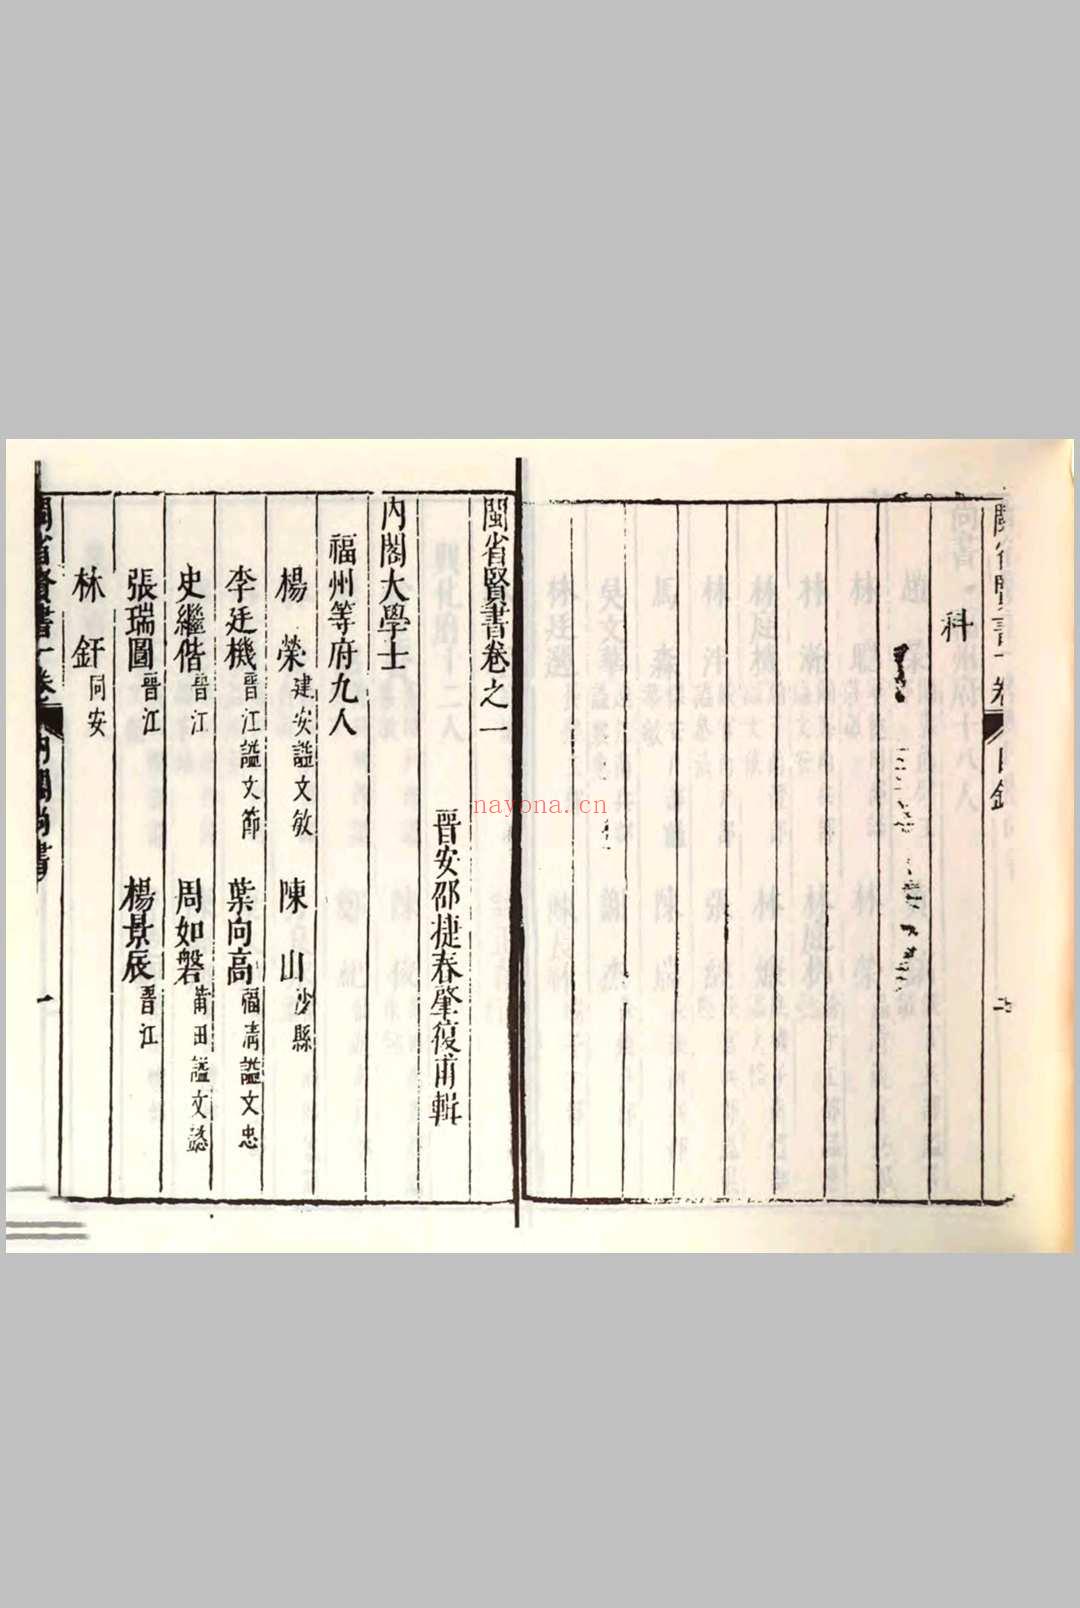 閩省賢書一卷 目錄
科
閩省賢書卷之一
晉安邵捷春肇復甫輯
內閣大學士
福州等府九人
楊榮 建安謚文敏 陳山 沙縣
李廷機 晉江謚文節 葉向高 福清謚文忠
史繼偕 晉江 周如磐 莆田謚文懿
張瑞圖 晉江 楊景辰 晋江
林釬 同安
閩省賢書一卷 內閣尚書 一
nayona.cn